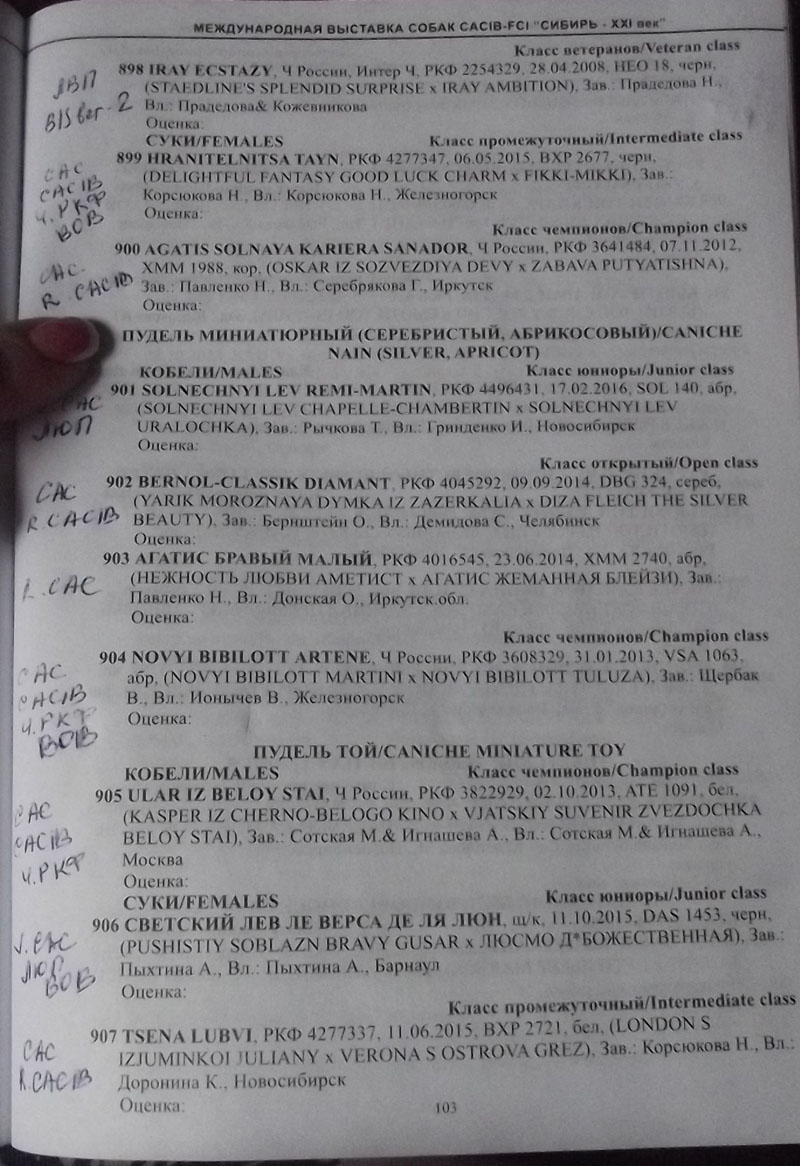 МЕЖДУНАРОДНАЯ ВЫСТАВКА СОБАК CACIB-FCI "СИБИРЬ - XXI век"
Класс ветеранов/Veteran class
898 IRAY ECSTAZY, Ч России, Интер Ч, РКФ 2254329, 28.04.2008, HEO 18, черн,
(STAEDLINE'S SPLENDID SURPRISE x IRAY AMBITION), Зав.: Праделова Н.,
Вл.: Праделова& Кожевникова
Оценка:
BIS вет-2
СУКИ/FEMALES Класс промежуточный/Intermediate class
899 HRANITELNITSA TAYN, РКФ 4277347, 06.05.2015, BXP 2677, черн,
(DELIGHTFUL FANTASY GOOD LUCK CHARM x FIKKI-MIKKI), Зав.:
Корсюкова Н., Вл.: Корсюкова Н., Железногорск
Оценка:
CAC
CACIB
Ч. РКФ
BOB
Класс чемпионов/Champion class
900 AGATIS SOLNAYA KARIERA SANADOR, Ч России, РКФ 3641484, 07.11.2012,
XMM 1988, кор, (OSKAR IZ SOZVEZDIYA DEVY x ZABAVA PUTYATISHNA),
Зав.: Павленко Н., Вл.: Серебрякова Г., Иркутск
Оценка:
CAC
R CACIB
ПУДЕЛЬ МИНИАТЮРНЫЙ (СЕРЕБРИСТЫЙ, АБРИКОСОВЫЙ)/CANICHE
NAIN (SILVER, APRICOT)
КОБЕЛИ/MALES Класс юниоры/Junior class
901 SOLNECHNYI LEV REMI-MARTIN, РКФ 4496431, 17.02.2016, SOL 140, абр,
(SOLNECHNYI LEV CHAPELLE-CHAMBERTIN x SOLNECHNYI LEV
URALOCHKA), Зав.: Рычкова Т., Вл.: Гринденко И., Новосибирск
Оценка:
CAC
ЛЮП
Класс открытый/Open class
902 BERNOL-CLASSIK DIAMANT, РКФ 4045292, 09.09.2014, DBG 324, сереб,
(YARIK MOROZNAYA DYMKA IZ ZAZERKALIA x DIZA FLEICH THE SILVER
BEAUTY), Зав.: Бернштейн О., Вл.: Демидова С., Челябинск
Оценка:
CAC
R CACIB
903 АГАТИС БРАВЫЙ МАЛЫЙ, РКФ 4016545, 23.06.2014, XMM 2740, абр,
(НЕЖНОСТЬ ЛЮБВИ АМЕТИСТ x АГАТИС ЖЕМАННАЯ БЛЕЙЗИ), Зав.:
Павленко Н., Вл.: Донская О., Иркутск.обл.
Оценка:
R. CAC
Класс чемпионов/Champion class
904 NOVYI BIBILOTT ARTENE, Ч России, РКФ 3608329, 31.01.2013, VSA 1063,
абр, (NOVYI BIBILOTT MARTINI x NOVYI BIBILOTT TULUZA), Зав.: Щербак
В., Вл.: Ионычев В., Железногорск
Оценка:
CAC
CACIB
Ч. РКФ
BOB
ПУДЕЛЬ ТОЙ/CANICHE MINIATURE TOY
КОБЕЛИ/MALES Класс чемпионов/Champion class
905 ULAR IZ BELOY STAI, Ч России, РКФ 3822929, 02.10.2013, ATE 1091, бел,
(KASPER IZ CHERNO-BELOGO KINO x VJATSKIY SUVENIR ZVEZDOCHKA
BELOY STAI), Зав.: Сотская М.& Игнашева А., Вл.: Сотская М.& Игнашева А.,
Москва
Оценка:
CAC
CACIB
Ч. РКФ
СУКИ/FEMALES Класс юниоры/Junior class
906 СВЕТСКИЙ ЛЕВ ЛЕ ВЕРСА ДЕ ЛЯ ЛЮН, щ/к, 11.10.2015, DAS 1453, черн,
(PUSHISTIY SOBLAZN BRAVY GUSAR x ЛЮСМО Д*БОЖЕСТВЕННАЯ), Зав.:
Пыхтина А., Вл.: Пыхтина А., Барнаул
Оценка:
CAC
BOB
Класс промежуточный/Intermediate class
907 TSENA LUBVI, РКФ 4277337, 11.06.2015, BXP 2721, бел, (LONDON S
IZJUMINKOI JULIANY x VERONA S OSTROVA GREZ), Зав.: Корсюкова Н., Вл.:
Доронина К., Новосибирск
Оценка:
CAC
R.CACIB
103